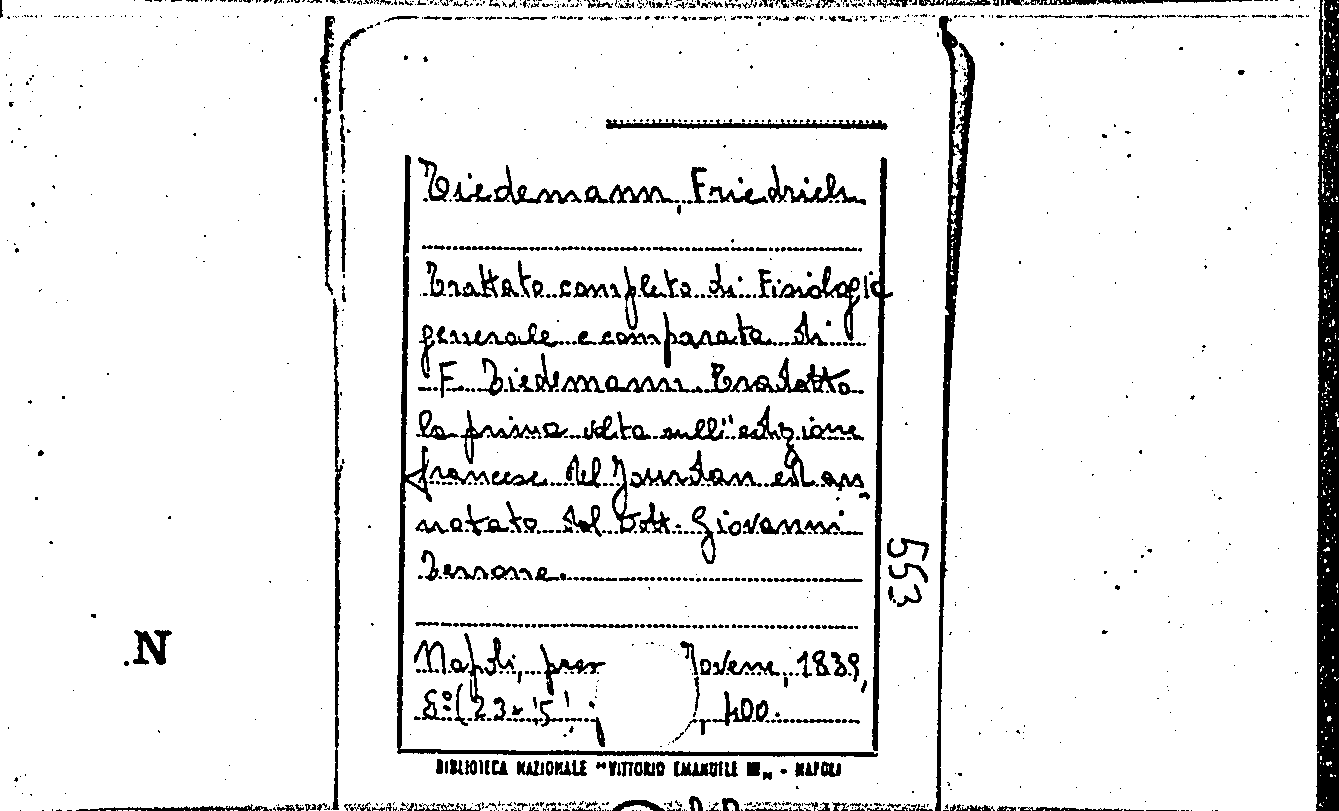 Tiedemann, Friedrich
Trattato completo di Fisiologia
generale e comparata di
F. Tiedemann Tradotto
la prima volta sull'edizione
francese del Jourdan ed an
notato dal Dott. Giovanni
Terrone.
Napoli, Jovene, 1839,
8° (23 400.
553
N
BIBLIOTECA NAZIONALE "VITTORIO EMANUELE III" - NAPOLI